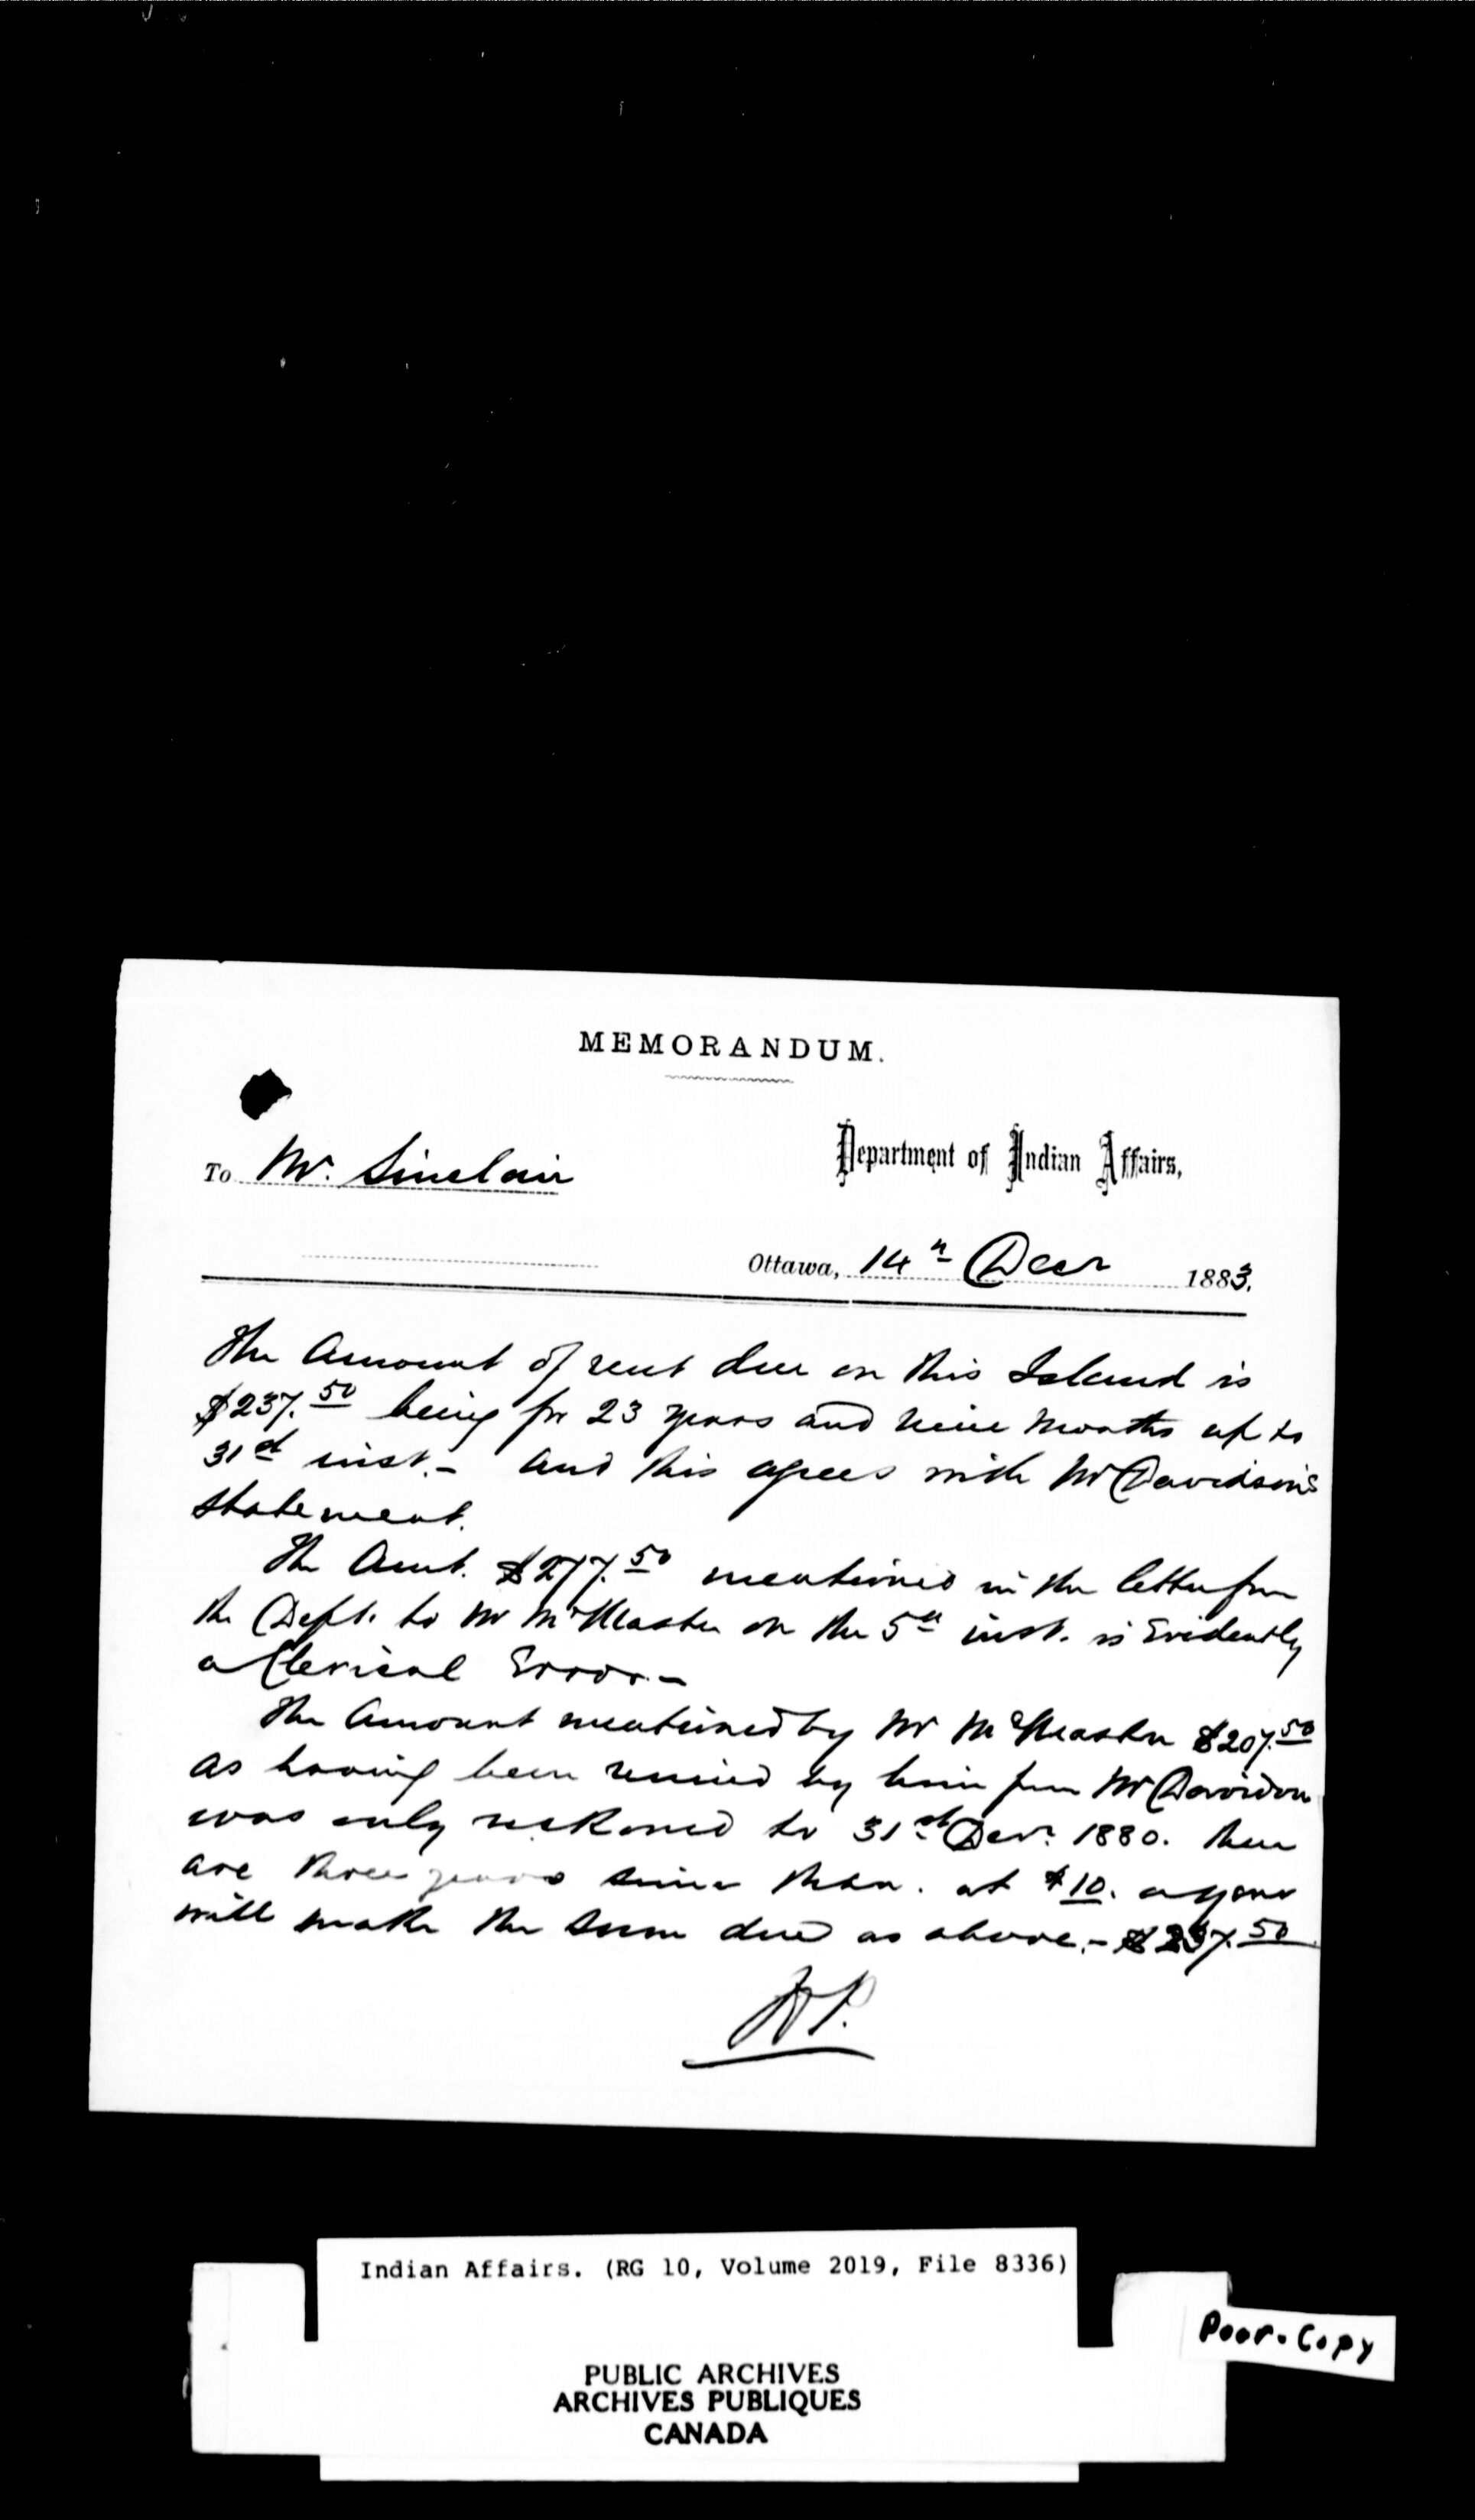 MEMORANDUM.
To Mr. Sinclair
Department of Indian Affairs,
Ottawa, 14th Decr 1883.
The Amount of rent due on this Island is
$237.50 being for 23 years and nine months up to
31st inst. - And this agrees with Mr Davidson's
statement.
The Amt. $277.50 mentioned in the letter from
the Dept. to Mr McMaster on the 5th inst. is Evidently
a Clerical Error. -
The Amount mentioned by Mr McMaster $207.50
as having been received by him from Mr Davidson
was only reckoned to 31st Decr. 1880. there
are three years since then. at $10. a year
will make the sum due as above. - $237.50
Indian Affairs. (RG 10, Volume 2019, File 8336)
Poor. Copy
PUBLIC ARCHIVES
ARCHIVES PUBLIQUES
CANADA